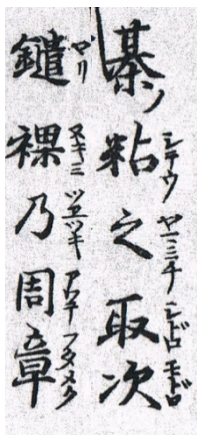 棊ノ粘之取次
シテウ ヤミミチ シドロ モドロ
鑓裸乃周章
ヌキミ ツエツキ アワテフタメク